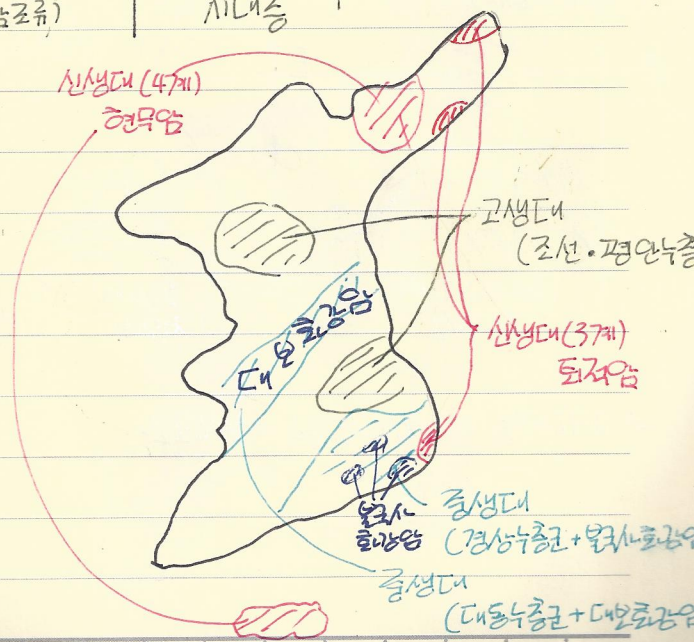 암조류)
지대층
신생대 (4계)
현무암
고생대
(조선·평안누층
신생대(3계)
퇴적암
대보화강암
불국사
화강암
중생대
(경상누층군+불국사화강암
중생대
(대동누층군+대보화강암